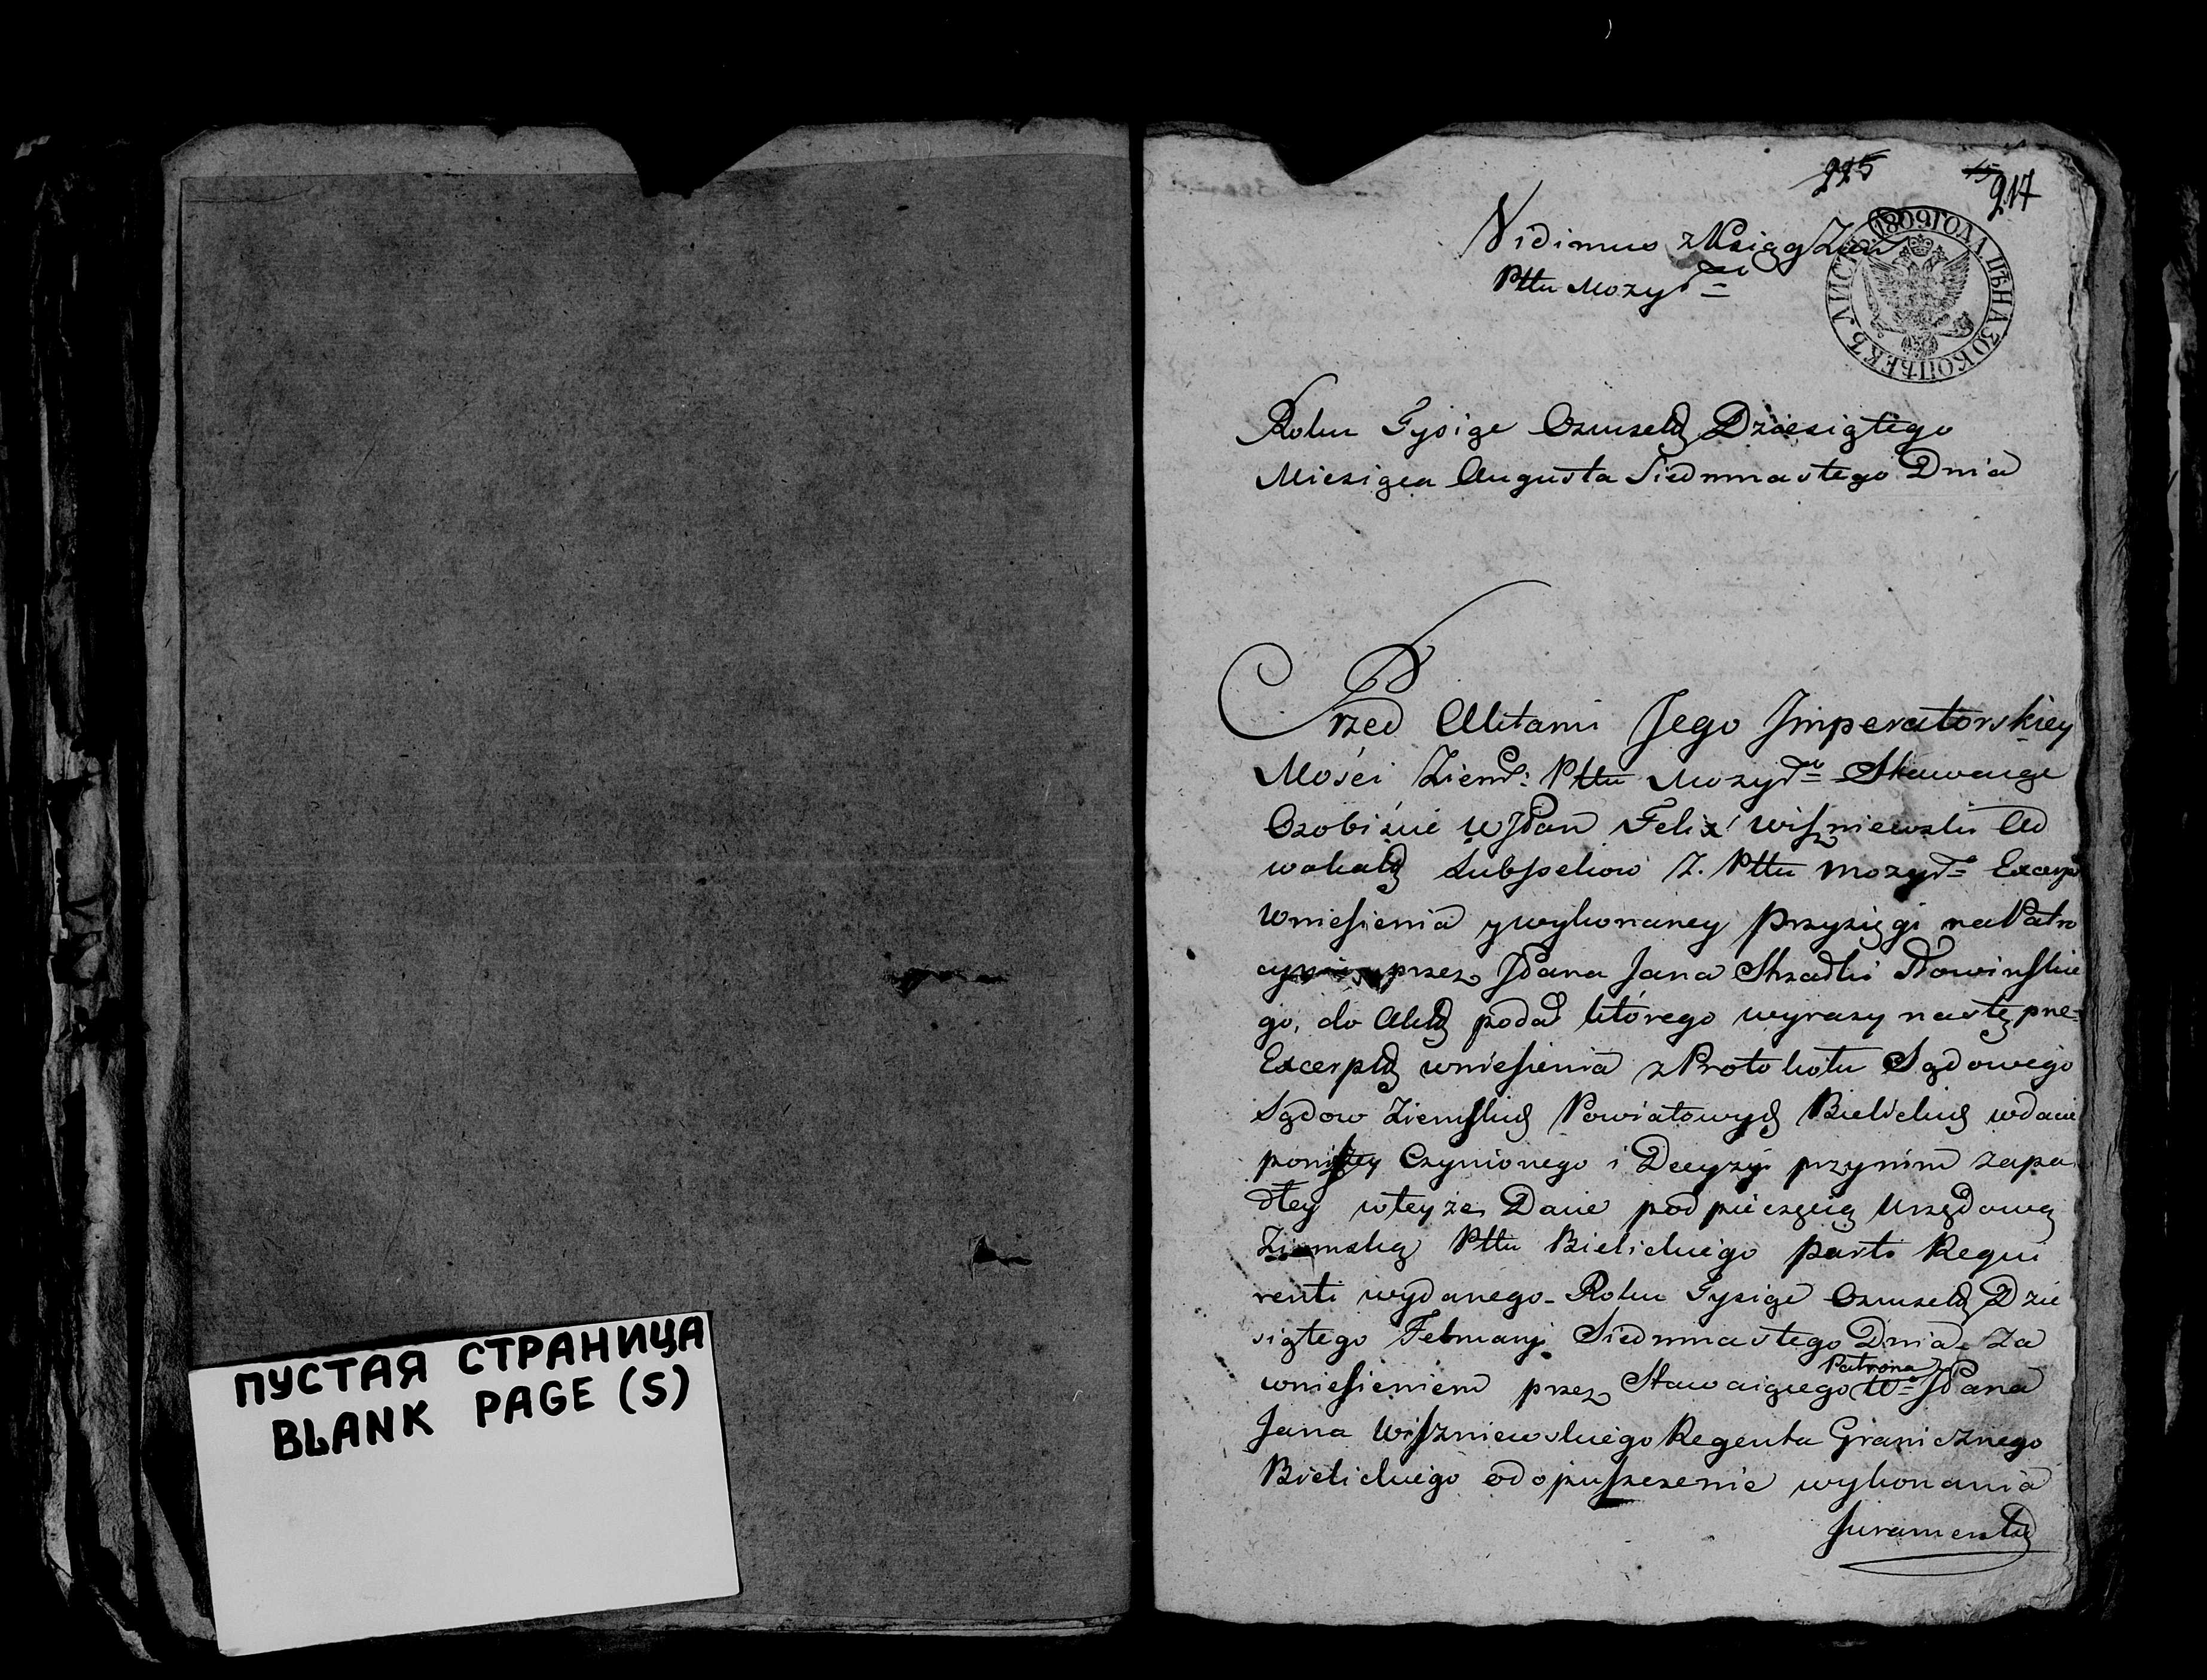 ПУСТАЯ СТРАНИЦА
BLANK PAGE (S)
225 15 217
Vidimus z Xsiąg Ziem
Pttu Mozyrgo
1809 ГОДА ЦѢНА 30 КОПѢЕКЪ ЛИСТ
Roku Tysiąc Osmset Dziesiątego
Miesiąca Augusta Siedmnastego Dnia
Przed Aktami Jego Imperatorskiey
Mości Ziem: Pttu Mozyrgo Stawaiąc
Osobiście WJPan Felix Wiszniewski Ad
wokat Subseliow Z. Pttu Mozyrgo Excerpt
wniesienia y wykonaney przysięgi na Patro
przez JPana Jana Strzadki Nowinskie
go, do Akt podał którego wyrazy następne=
Excerpt wniesienia z Protokołu Sądowego
Sądow Ziemskich Powiatowych Bielickich w dacie
poniższey Czynionego i Decyzyi przy nim zapa
dłey w teyże Dacie pod pieczęcią Urzędową
Ziemską Pttu Bielickiego parti Requi
renti wydanego - Roku Tysiąc Osmset Dzie
siątego Februarij Siedmnastego Dnia - Za
wniesieniem przez Stawaiącego Patrona WJPana
Jana Wiszniewskiego Regenta Granicznego
Bielickiego o dopuszczenie wykonania
Juramentu